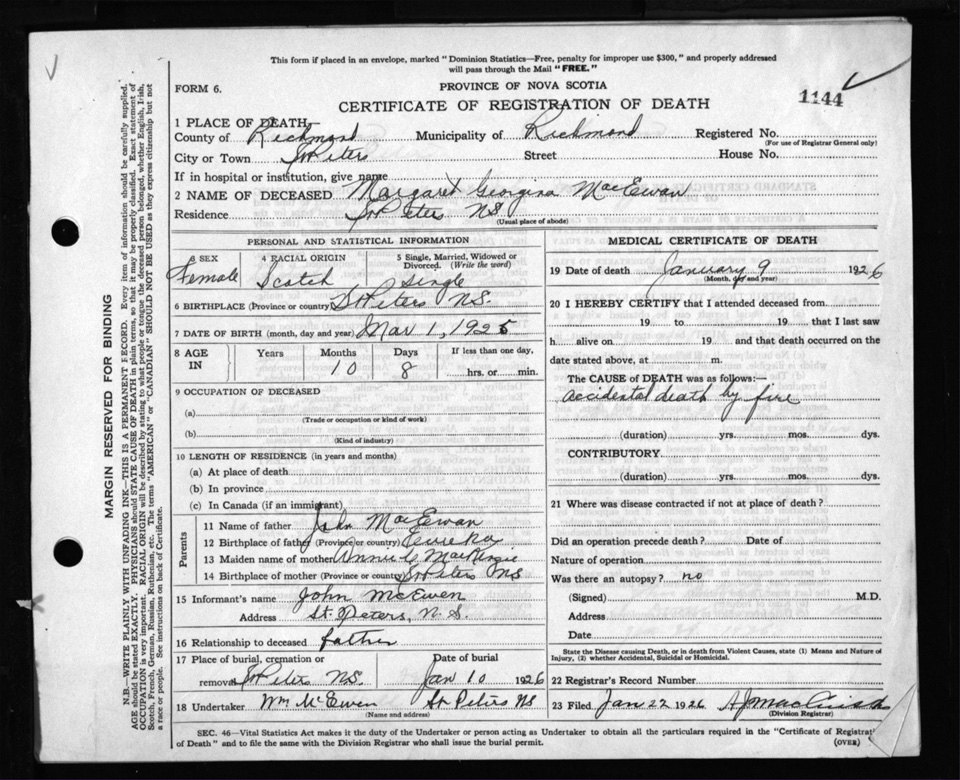 This form if placed in an envelope, marked "Dominion Statistics—Free, penalty for improper use $300," and properly addressed
will pass through the Mail "FREE."
FORM 6.
PROVINCE OF NOVA SCOTIA
1144
CERTIFICATE OF REGISTRATION OF DEATH
1 PLACE OF DEATH,
County of Richmond Municipality of Richmond Registered No.
(For use of Registrar General only)
City or Town St Peters Street House No.
If in hospital or institution, give name
2 NAME OF DECEASED Margaret Georgina MacEwan
Residence St Peters NS
(Usual place of abode)
PERSONAL AND STATISTICAL INFORMATION
3 SEX 4 RACIAL ORIGIN 5 Single, Married, Widowed or
Divorced. (Write the word)
Female Scotch Single
6 BIRTHPLACE (Province or country) St Peters NS.
7 DATE OF BIRTH (month, day and year) Mar 1, 1925
8 AGE IN Years Months Days If less than one day,
10 8 hrs. or min.
9 OCCUPATION OF DECEASED
(a)
(Trade or occupation or kind of work)
(b)
(Kind of industry)
10 LENGTH OF RESIDENCE (in years and months)
(a) At place of death
(b) In province
(c) In Canada (if an immigrant)
Parents
11 Name of father John MacEwan
12 Birthplace of father (Province or country) Eureka
13 Maiden name of mother Annie G MacKenzie
14 Birthplace of mother (Province or country) St Peters NS
15 Informant's name John McEwen
Address St. Peters, N.S.
16 Relationship to deceased father
17 Place of burial, cremation or Date of burial
removal St Peters NS. Jan 10 1926
18 Undertaker Wm McEwen St Peters NS
(Name and address)
MEDICAL CERTIFICATE OF DEATH
19 Date of death January 9 1926
(Month, day and year)
20 I HEREBY CERTIFY that I attended deceased from
19 to 19 that I last saw
h alive on 19 and that death occurred on the
date stated above, at m.
The CAUSE of DEATH was as follows:—
accidental death by fire
(duration) yrs. mos. dys.
CONTRIBUTORY
(duration) yrs. mos. dys.
21 Where was disease contracted if not at place of death?
Did an operation precede death? Date of
Nature of operation
Was there an autopsy? no
(Signed) M.D.
Address
Date
State the Disease causing Death, or in death from Violent Causes, state (1) Means and Nature of
Injury, (2) whether Accidental, Suicidal or Homicidal.
22 Registrar's Record Number
23 Filed Jan 22 1926 A J Mac
(Division Registrar)
SEC. 46—Vital Statistics Act makes it the duty of the Undertaker or person acting as Undertaker to obtain all the particulars required in the "Certificate of Registrati
of Death" and to file the same with the Division Registrar who shall issue the burial permit.
(OVER)
MARGIN RESERVED FOR BINDING
N.B.—WRITE PLAINLY WITH UNFADING INK—THIS IS A PERMANENT RECORD. Every item of information should be carefully supplied.
AGE should be stated EXACTLY. PHYSICIANS should STATE CAUSE OF DEATH in plain terms, so that it may be properly classified. Exact statement of
OCCUPATION is very important. RACIAL ORIGIN will be described by stating to what people or tongue the deceased person belonged, whether English, Irish,
Scotch, French, German, Russian, Ruthenian, etc. The terms "AMERICAN" or "CANADIAN" SHOULD NOT BE USED as they express citizenship but not
a race or people. See instructions on back of Certificate.